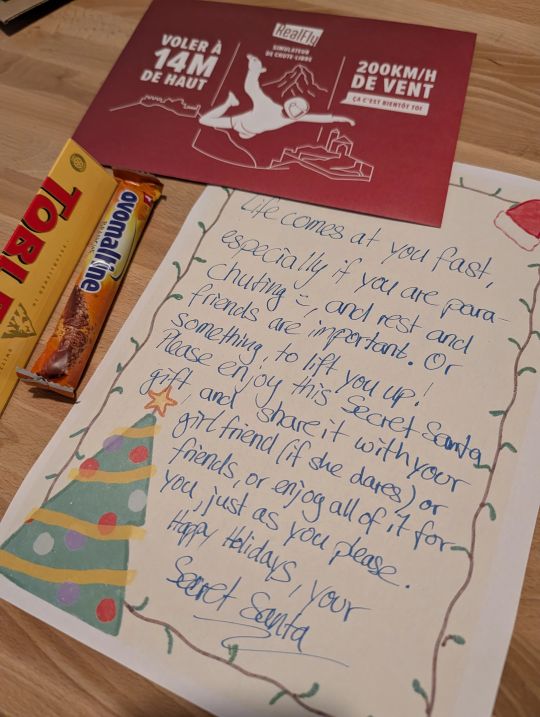 RealFly
SIMULATEUR
DE CHUTE-LIBRE
VOLER À
14M
DE HAUT
200KM/H
DE VENT
ÇA C'EST BIENTÔT TOI
TOBL
ovomaltine
Life comes at you fast,
especially if you are para-
chuting :), and rest and
friends are important. Or
something, to lift you up!
Please enjoy this Secret Santa
gift, and share it with your
girlfriend (if she dares) or
friends, or enjoy all of it for
you, just as you please.
Happy Holidays, your
Secret Santa